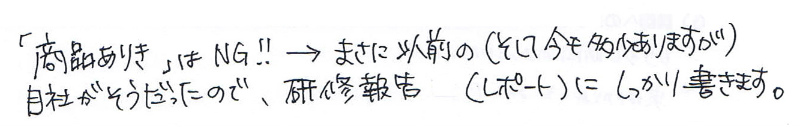 「商品ありき」はNG!! → まさに以前の(そして今も多少ありますが)
自社がそうだったので、研修報告(レポート)にしっかり書きます。